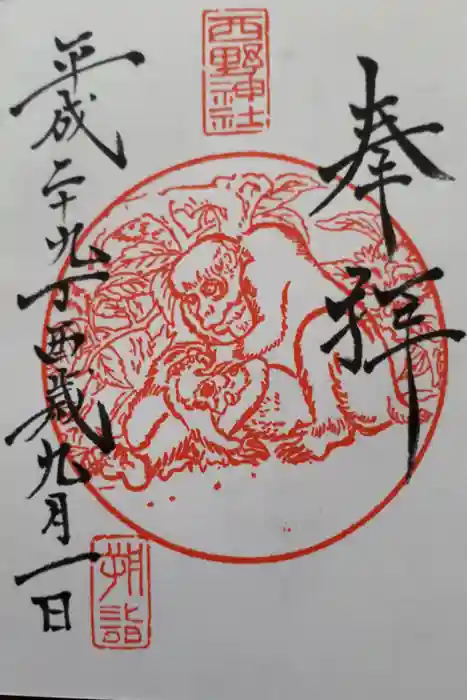 奉拝
西野神社
平成二十九丁酉歳九月一日
朔詣